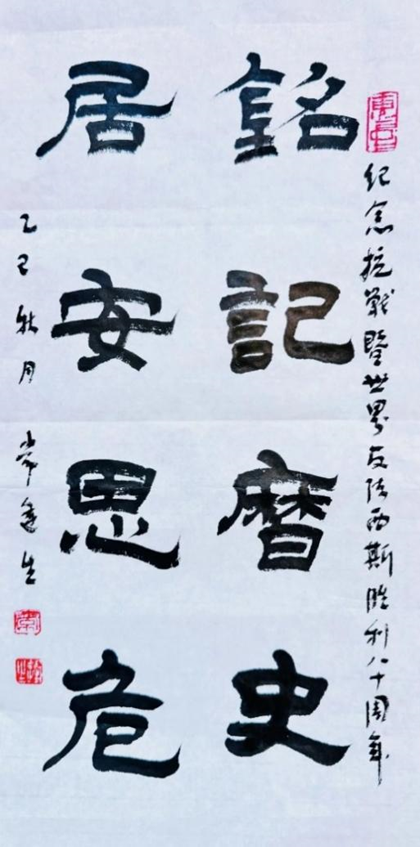 纪念抗戰暨世界反法西斯胜利八十周年
銘記曆史
居安思危
乙巳秋月